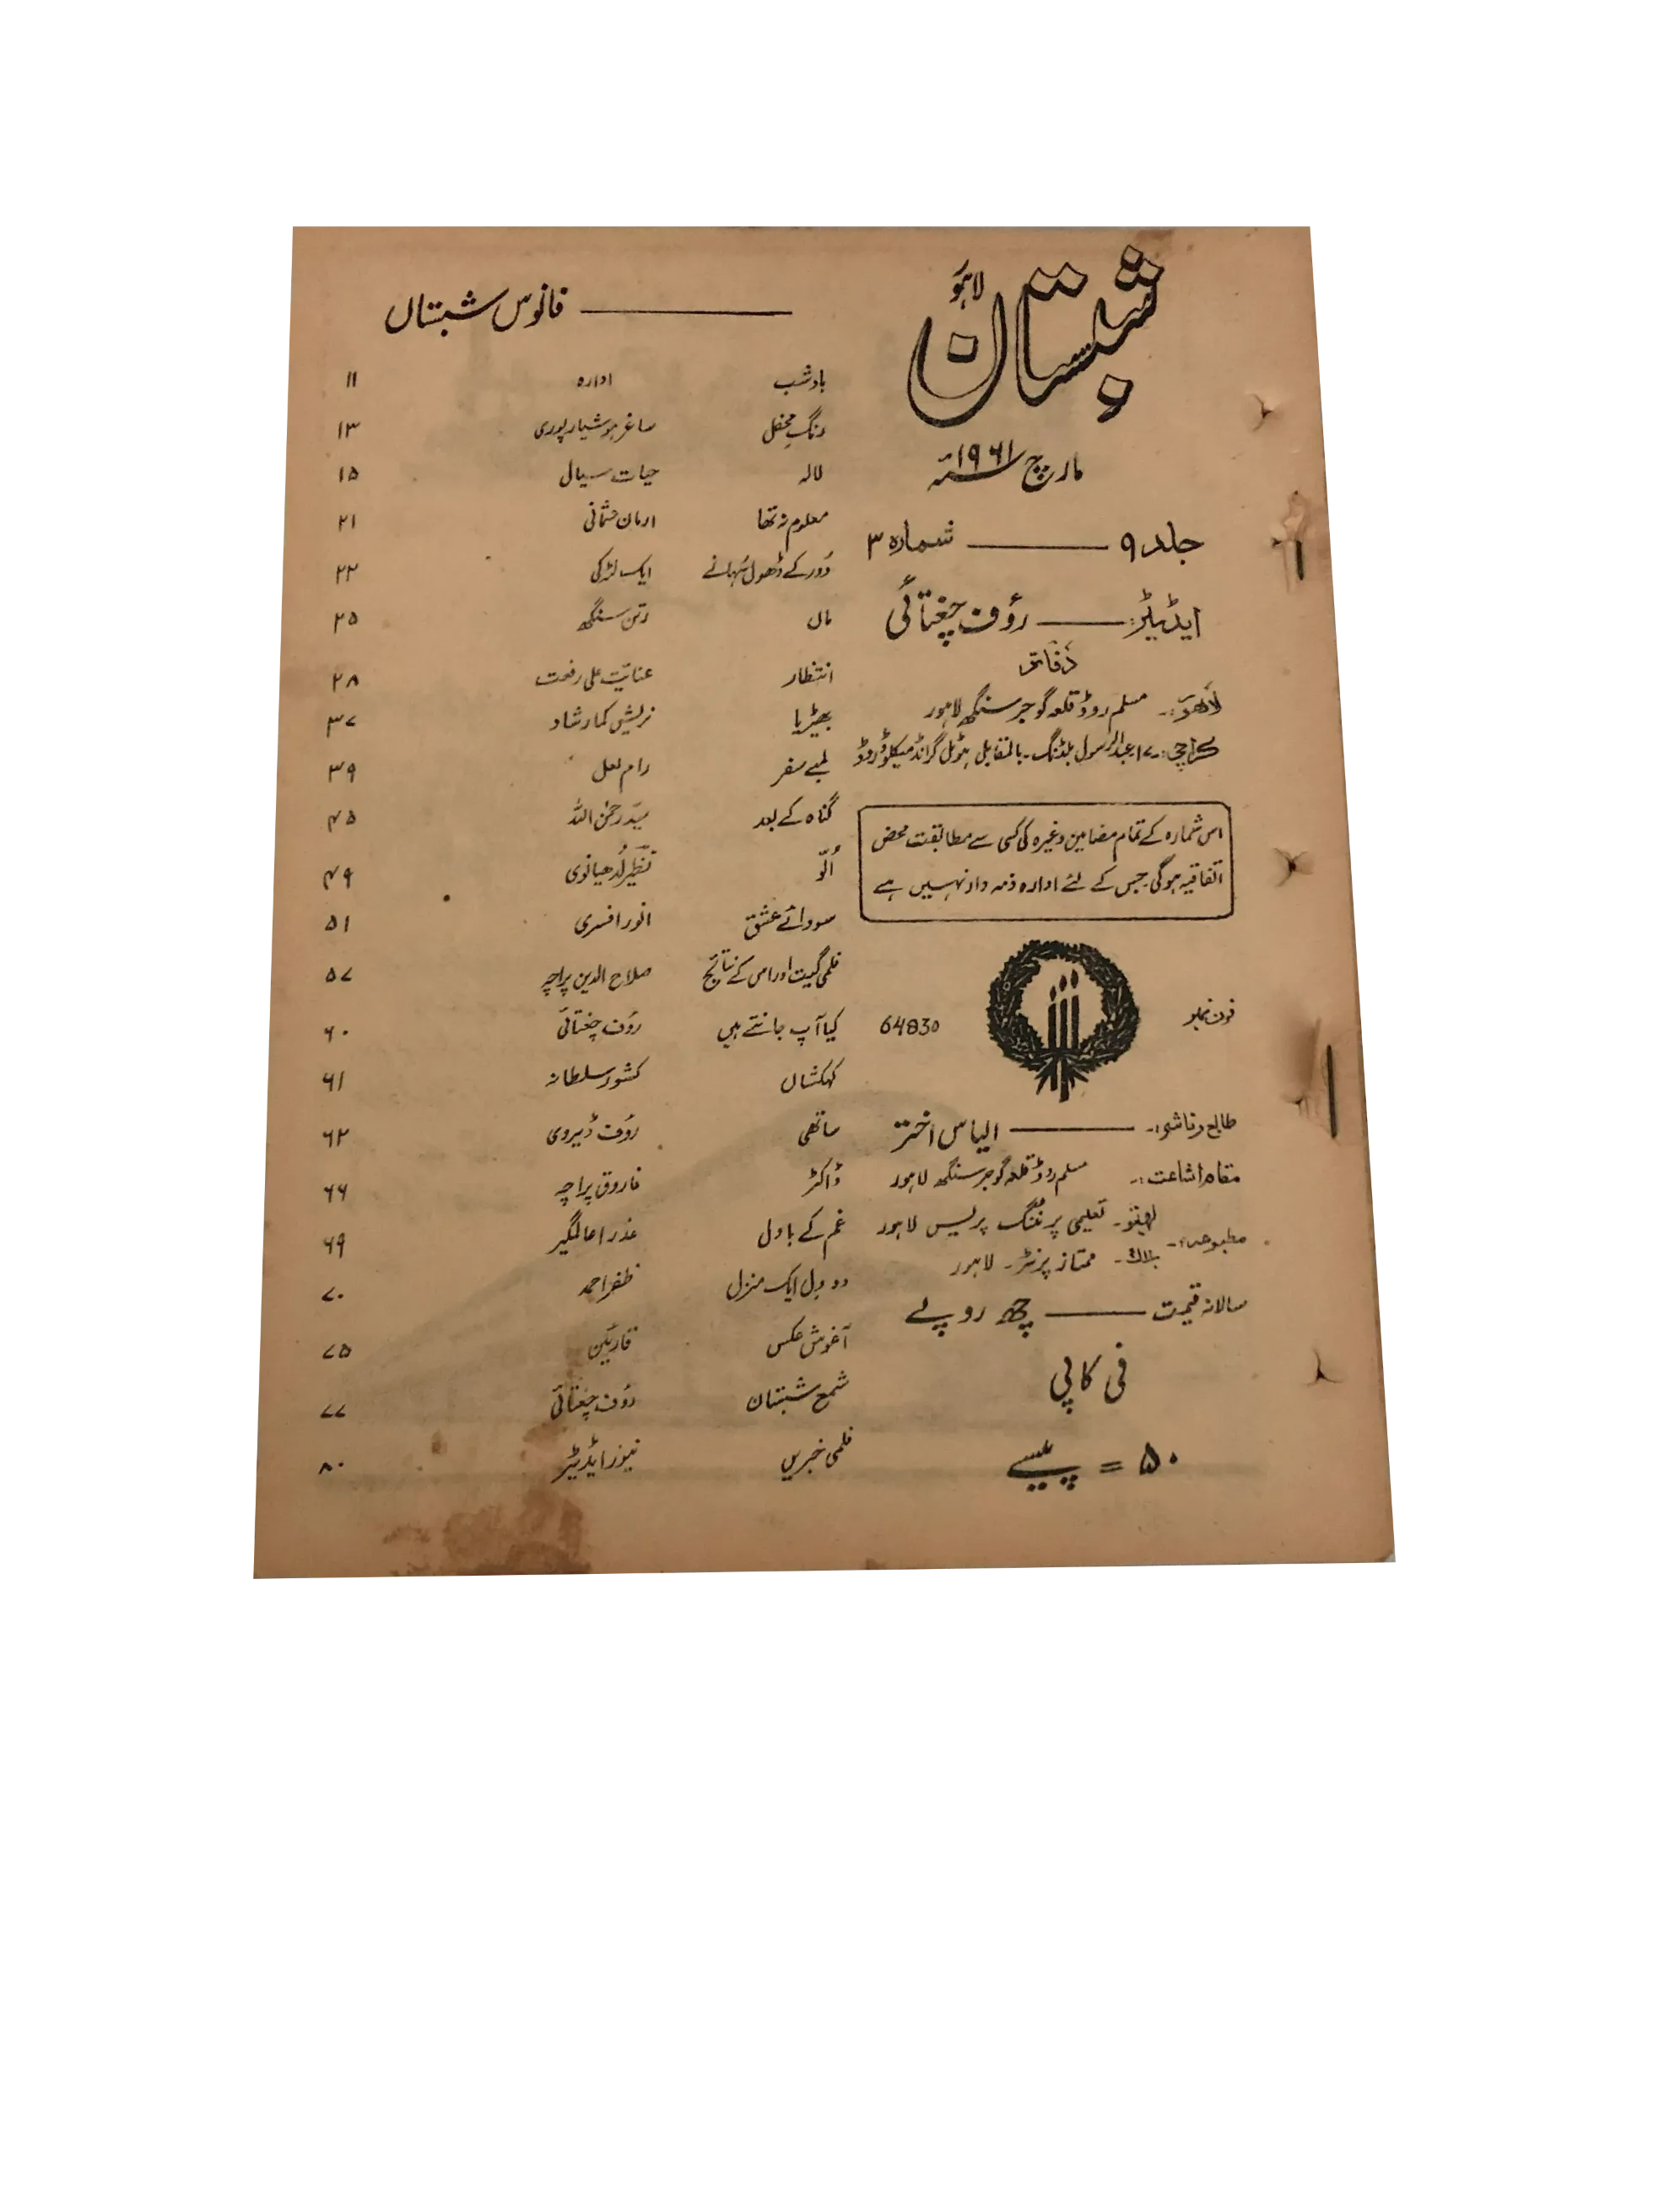 شبستان
لاہور
مارچ ۱۹۶۱ء
جلد ۹ ــــــ شمارہ ۳
ایڈیٹر: ــــــ رؤف چغتائی
دفاتر
لاہور:۔ مسلم روڈ قلعہ گوجر سنگھ لاہور
کراچی:۔ ۱۷۔عبدالرسول بلڈنگ۔ بالمقابل ہوٹل گرانڈ میکلوڈ روڈ
اس شمارہ کے تمام مضامین وغیرہ کی کسی سے مطابقت محض
اتفاقیہ ہوگی جس کے لئے ادارہ ذمہ دار نہیں ہے
فون نمبر 64830
طابع و ناشر:۔ ــــــ الیاس اختر
مقام اشاعت:۔ مسلم روڈ قلعہ گوجر سنگھ لاہور
مطبوعہ:۔ لیتھو۔ تعلیمی پرنٹنگ پریس لاہور
بلاک۔ ممتاز پرنٹر۔ لاہور
سالانہ قیمت ــــــ چھ روپے
فی کاپی
۵۰ = پیسے
ــــــ فانوس شبستاں
باد شب ادارہ ۱۱
رنگِ محفل ساغر ہوشیارپوری ۱۳
لالہ حیات سیال ۱۵
معلوم نہ تھا ارمان عثمانی ۲۱
دُور کے ڈھول سُہانے ایک لڑکی ۲۲
ماں رتن سنگھ ۲۵
انتظار عنایت علی رفعت ۲۸
بھیڑیا نریش کمار شاد ۳۷
لمبے سفر رام لعل ۳۹
گناہ کے بعد سیّد رحمٰن اللہ ۴۵
اُلّو نظیر لُدھیانوی ۴۹
سودائے عشق انور افسری ۵۱
فلمی گیت اور اس کے نتائج صلاح الدین پراچہ ۵۷
کیا آپ جانتے ہیں رؤف چغتائی ۶۰
کہکشاں کشور سلطانہ ۶۱
ساتھی رؤف ڈیروی ۶۲
ڈاکٹر فاروق پراچہ ۶۶
غم کے بادل عذرا عالمگیر ۶۹
دو دل ایک منزل ظفر احمد ۷۰
آغوش عکس قارئین ۷۵
شمع شبستان رؤف چغتائی ۷۷
فلمی خبریں نیوز ایڈیٹر ۸۰